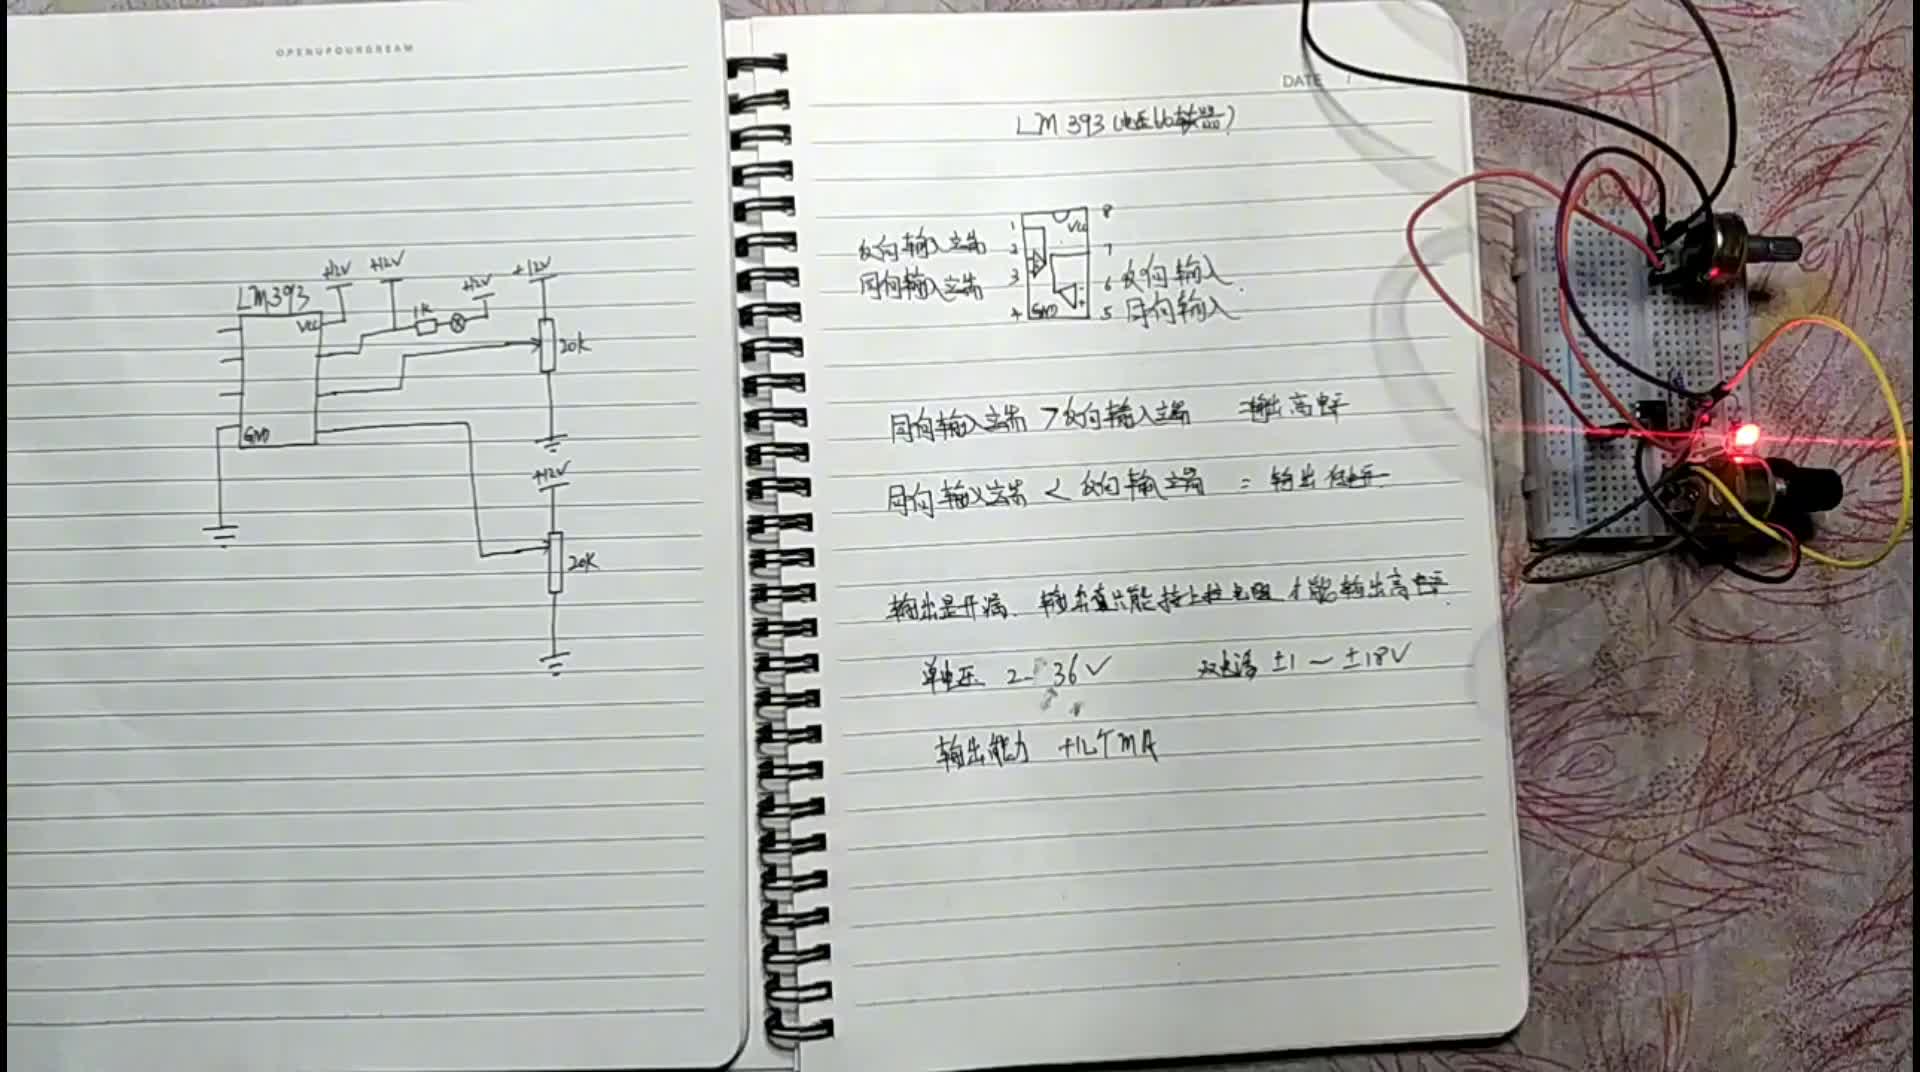 OPENUPOURDREAM
+12V
+12V
+12V
+12V
LM393
VCC
1K
20K
GND
+12V
20K
DATE /
LM393(电压比较器)
1
8
VCC
反向输入端
2
7
同向输入端
3
6
反向输入
4
GND
5
同向输入
同向输入端 > 反向输入端 = 输出高电平
同向输入端 < 反向输入端 = 输出低电平
输出是开漏. 只能接上拉电阻才能输出高电平.
单电压 2- 36V 双电源 ±1 — ±18V
输出能力 mA